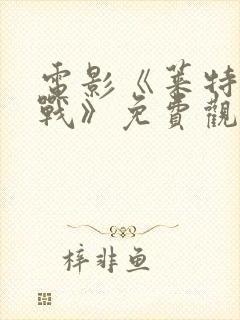 電影《萊特
戰》免費觀
梓非鱼